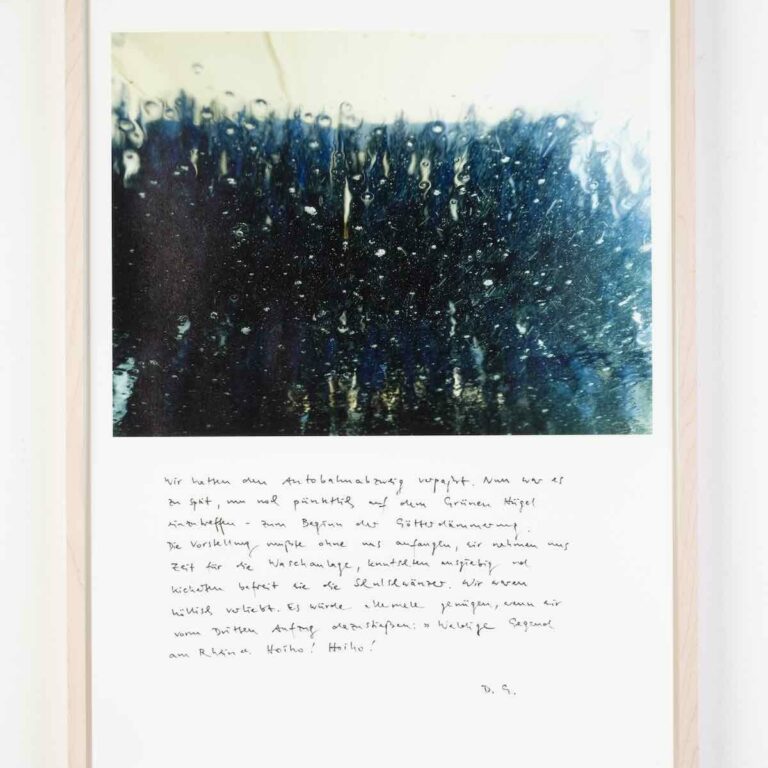 Wir hatten den Autobahnabzweig verpaßt. Nun war es
zu spät, um noch pünktlich auf dem Grünen Hügel
einzutreffen – zum Beginn der Götterdämmerung.
Die Vorstellung mußte ohne uns anfangen, wir nahmen uns
Zeit für die Waschanlage, knutschten ausgiebig und
kicherten befreit wie die Schulschwänzer. Wir waren
höllisch verliebt. Es würde allemale genügen, wenn wir
vorm Dritten Aufzug dazustießen: »Waldige Gegend
am Rhein«. Hoiho! Hoiho!
D. G.